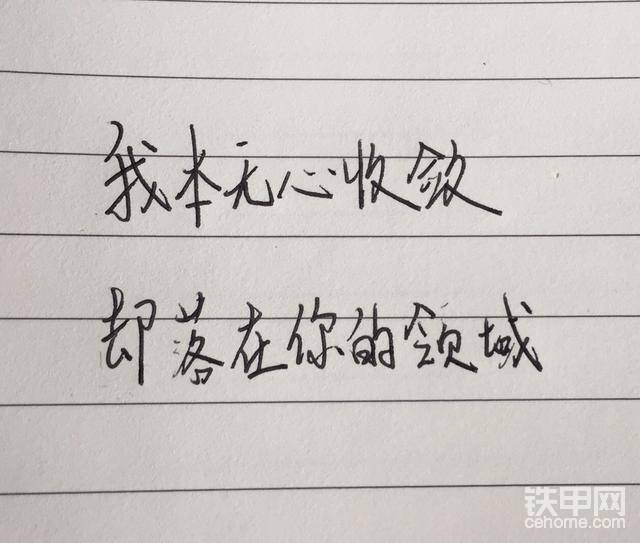 我本无心收敛
却落在你的领域
铁甲网
cehome.com